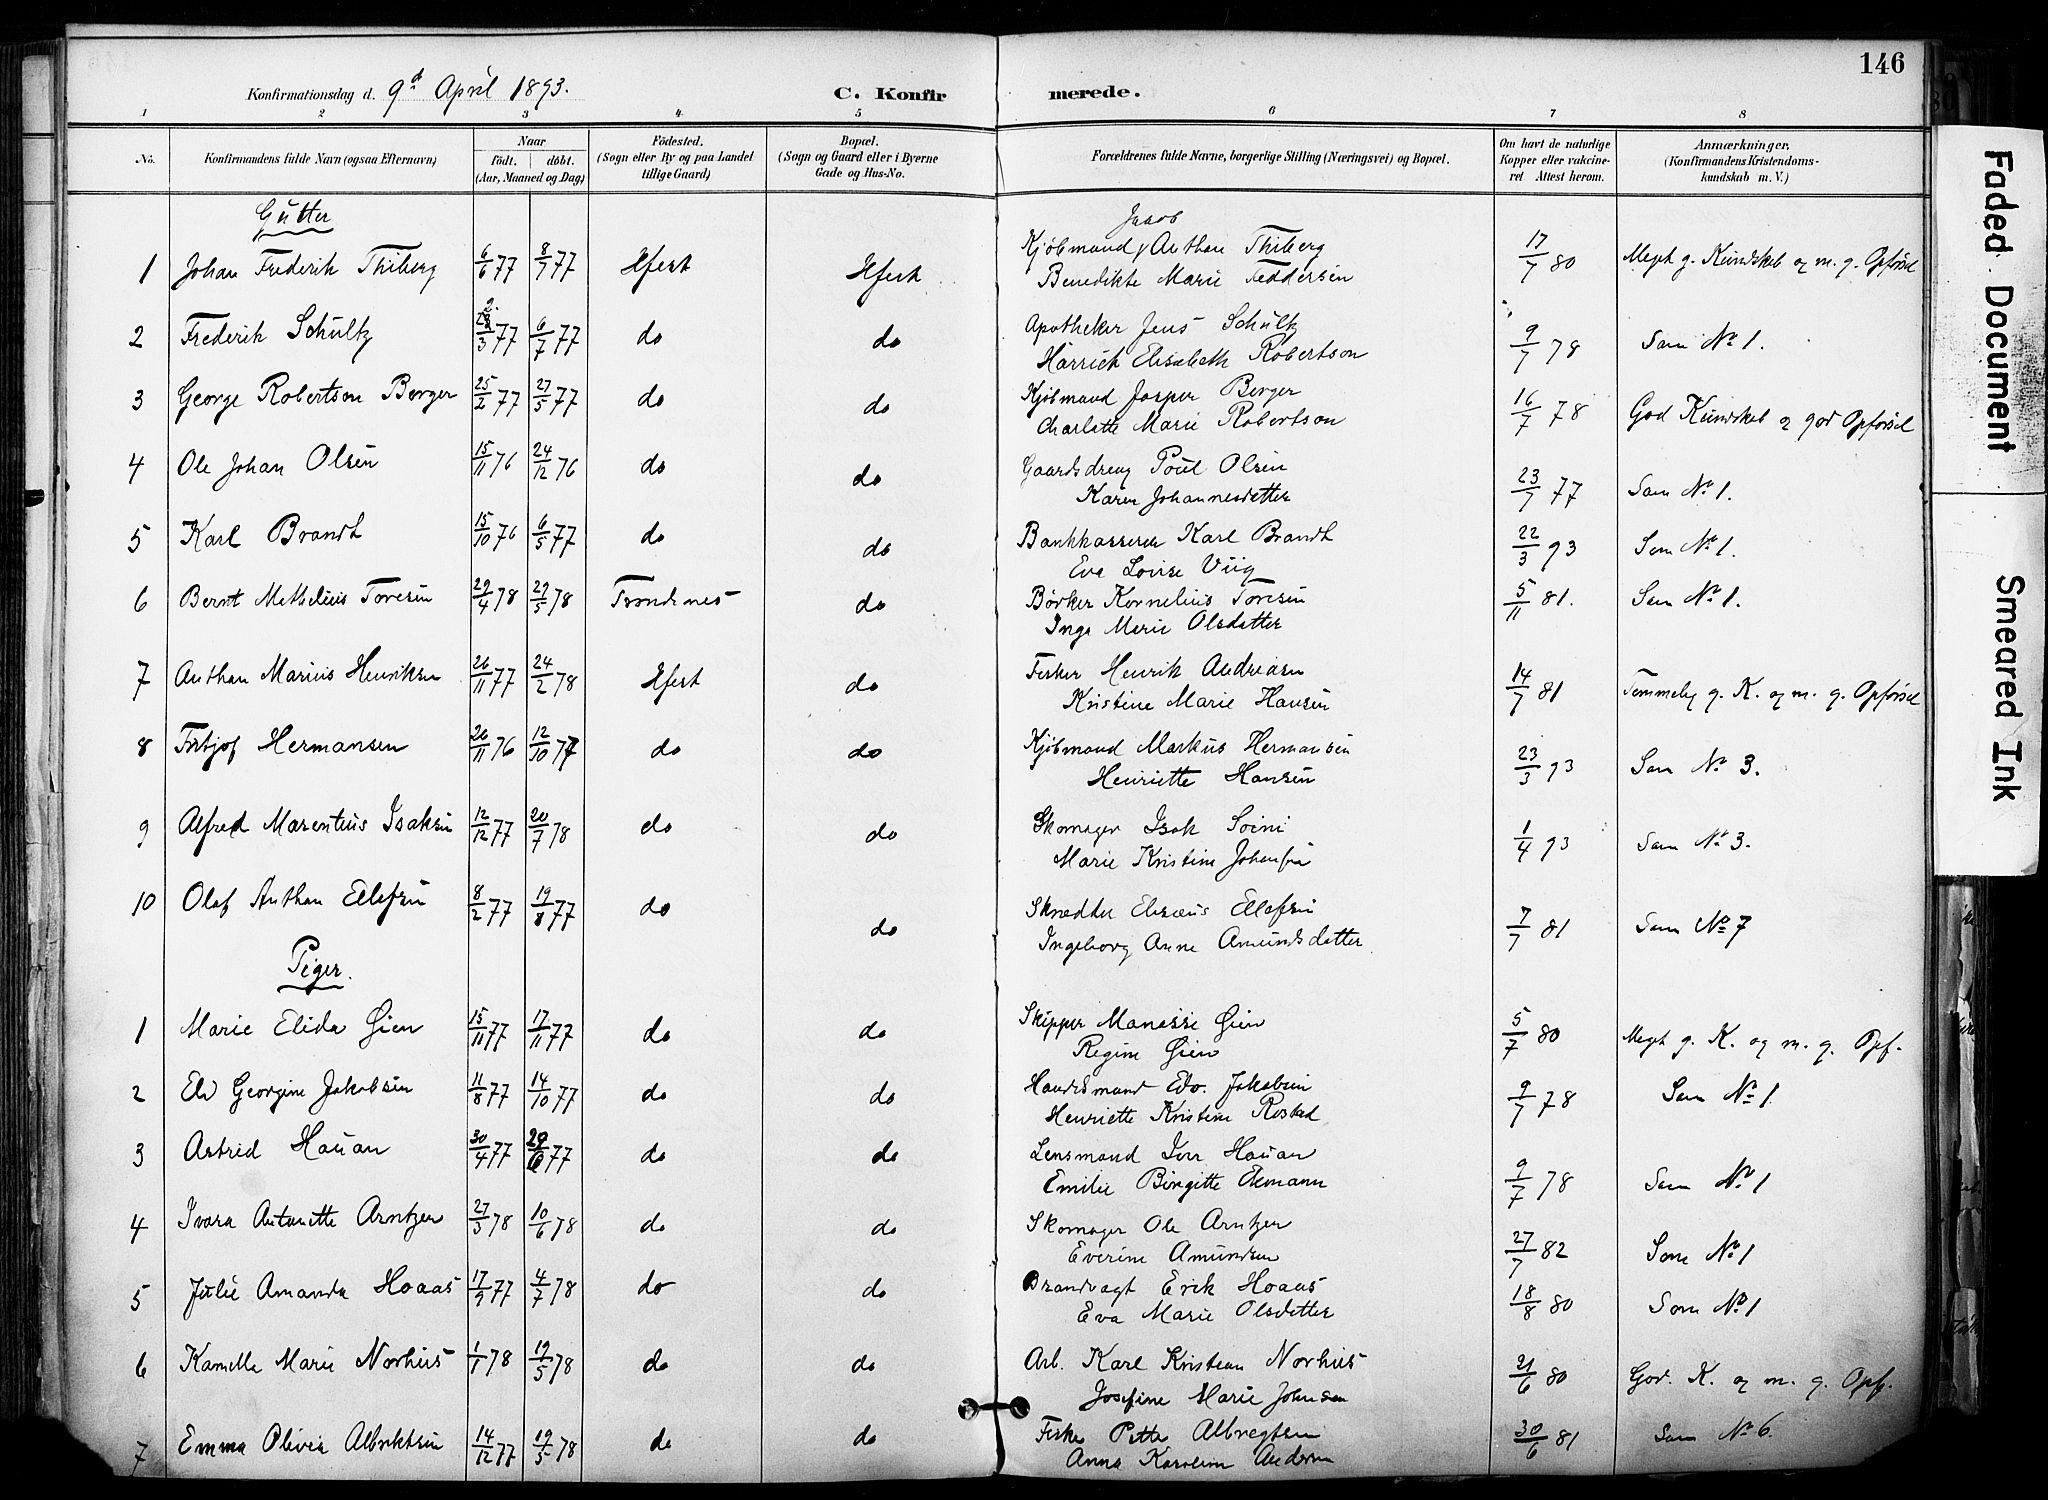 146
Konfirmationsdag d. 9d April 1893. C. Konfirmerede.
1 2 3 4 5 6 7 8
No. Konfirmandens fulde Navn (ogsaa Efternavn) Naar födt. döbt. (Aar, Maaned og Dag) Födested. (Sogn eller By og paa Landet tillige Gaard) Bopæl. (Sogn og Gaard eller i Byerne Gade og Hus-No. Forældrenes fulde Navne, borgerlige Stilling (Næringsvei) og Bopæl. Om havt de naturlige Kopper eller vakcineret Attest herom. Anmærkninger. (Konfirmandens Kristendomskundskab m. V.)
Gutter
1 Johan Frederik Thiberg 6/6 77 8/7 77 Hfest Hfest Kjøbmand Jacob Anthon Thiberg 17/7 80 Meget g. Kundskab og m. g. Opførsel
Benedikte Marie Feddersen
2 Frederik Schultz 77 6/7 77 do do Apotheker Jens Schultz 9/7 78 Som No 1.
Harriet Elisabeth Robertson
3 George Robertson Berger 25/2 77 27/5 77 do do Kjøbmand Jasper Berger 16/7 78 God Kundskab og god Opførsel
Charlotte Marie Robertson
4 Ole Johan Olsen 15/11 76 24/12 76 do do Gaardsdreng Poul Olsen 23/7 77 Som No 1.
Karen Johannesdatter
5 Karl Brandt 15/10 76 6/5 77 do do Bankkasserer Karl Brandt 22/3 93 Som No 1.
Eva Lovise Viig
6 Bernt Mathelius Toresen 29/4 78 29/5 78 Trondenes do Bødker Kornelius Toresen 5/11 81. Som No 1.
Inga Marie Olsdatter
7 Anthon Marius Henriksen 26/11 77 24/2 78 Hfest do Fisker Henrik Andreasen 14/7 81 Temmelig g. K. og m. g. Opførsel
Kristine Marie Hansen
8 Fritjof Hermansen 26/11 76 12/10 77 do do Kjøbmand Markus Hermansen 23/3 93 Som No 3.
Henriette Hansen
9 Alfred Marentius Isaksen 12/12 77 20/7 78 do do Skomager Isak Soini 1/4 93 Som No 3.
Marie Kristine
10 Olaf Anthon Ellefsen 8/2 77 19/8 77 do do Skrædder Elisæus Ellefsen 7/7 81 Som No 7
Ingeborg Anne Amundsdatter
Piger.
1 Marie Elida Gien 15/11 77 17/11 77 do do Skipper Manasse Gien 5/7 80 Meget g. K. og m. g. Opf.
Regine Gien
2 Georgine Jakobsen 11/8 77 14/10 77 do do Handelsmand Edv. Jakobsen 9/7 78 Som No 1
Henriette Kristine Rostad
3 Astrid Hauan 30/4 77 77 do do Lensmand Iver Hauan 9/7 78 Som No 1
Emilie Birgitte
4 Ivara Antonette Arntzen 27/3 78 10/6 78 do do Skomager Ole Arntzen 27/7 82 Som No 1
Everine Amundsen
5 Julie Amanda Hoaas 17/9 77 4/7 78 do do Brandvagt Erik Hoaas 18/8 80 Som No 1
Eva Marie Olsdatter
6 Kamilla Marie Norhus 1/1 78 19/5 78 do do Arb. Karl Kristian Norhus 21/6 80 God. K. og m. g. Opf.
Josefine Marie Johnsen
7 Emma Olivia Albriktsen 14/12 77 19/5 78 do do Fisker Petter Albregtsen 30/6 81 Som No 6.
Anna Karoline Andersen
Faded Document
Smeared Ink